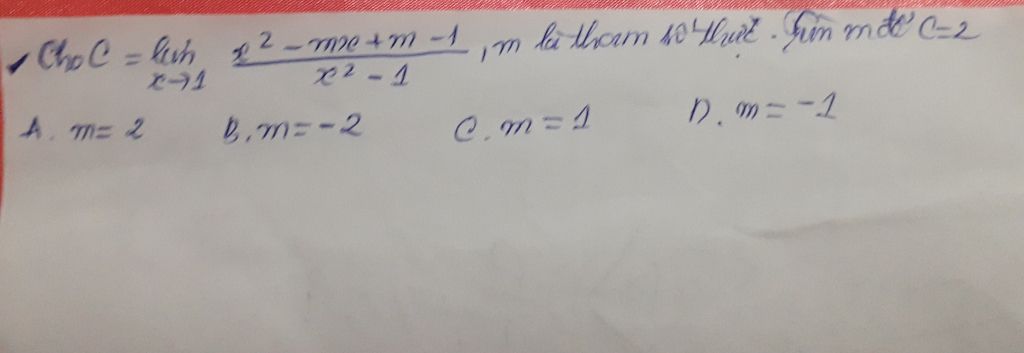 Cho C = lim x→1 (x² - mx + m - 1)/(x² - 1), m là tham số thực. Tìm m để C=2
A. m = 2 B. m = -2 C. m = 1 D. m = -1